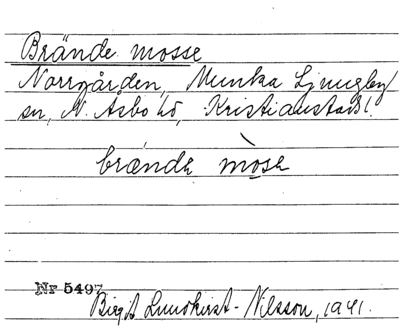 Brände mosse
Norrgården, Munka Ljungby
sn, N. Åsbo hd, Kristianstads l.
brænde mòse
Nr 5497
Birgit Lundkvist-Nilsson, 1941.